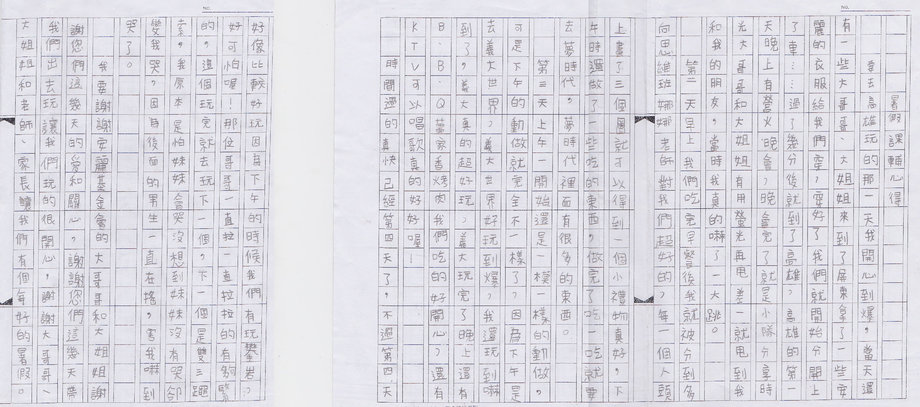 暑假課輔心得
要去高雄玩的那一天我開心到爆，當天還
有一些大哥哥、大姐姐來到了屏東拿了一些要
麗的衣服給我們穿，穿好了我們就開始分開上
了車…過了幾分後就到了高雄，高雄的第一
天晚上有營火晚會，晚會完了就是小隊分享時
光大哥哥和大姐姐有用螢光再甩，差一點就甩到
和我的朋友，當時我真的嚇了一大跳。
第二天早上我們吃完早餐後我就被分到多
向思維班娜娜老師對我們超好的，每一個人頭
上畫了三個圖就可以得到一個小禮物真好，下
午時還做了一些吃的東西，做完了吃一吃就要
去夢時代，夢時代裡面有很多的東西。
第三天上午一開始還是一模一樣的動做，
可是下午的動做就完全不一樣了，因為下午是
去義大世界，義大世界好玩到爆，我還玩到嚇
到了，義大真的超好玩，義大玩完了晚上還有
B.B.Q萬家香烤肉我們吃的好開心，還有
KTV可以唱歌真的好好喔！
時間還的真快已經第四天了，不過第四天
好像比較好玩因為下午的時候我們有玩攀岩，
好可怕喔！那位哥哥一直拉一直拉拉的有夠緊
的，這個玩完就去玩下一個，下一個是雙三趨
索，我原本是怕妹妹會哭沒想到妹妹沒有哭卻
變我哭，因為後面的男生一直在搖，害我嚇到
哭了。
我要謝謝安麗基金會的大哥哥和大姐姐謝
謝您們這幾天的愛和關心，謝謝您們這幾天帶
我們出去玩讓我們玩的很開心，謝謝大哥哥、
大姐姐和老師、家長讓我們有個每好的暑假。